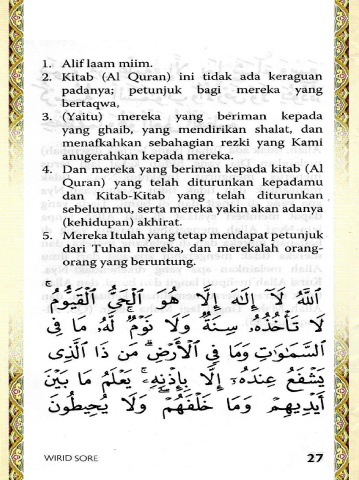 1. Alif laam miim.
2. Kitab (Al Quran) ini tidak ada keraguan
padanya; petunjuk bagi mereka yang
bertaqwa,
3. (Yaitu) mereka yang beriman kepada
yang ghaib, yang mendirikan shalat, dan
menafkahkan sebahagian rezki yang Kami
anugerahkan kepada mereka.
4. Dan mereka yang beriman kepada kitab (Al
Quran) yang telah diturunkan kepadamu
dan Kitab-Kitab yang telah diturunkan
sebelummu, serta mereka yakin akan adanya
(kehidupan) akhirat.
5. Mereka Itulah yang tetap mendapat petunjuk
dari Tuhan mereka, dan merekalah orang-
orang yang beruntung.
ٱللَّهُ لَآ إِلَٰهَ إِلَّا هُوَ ٱلْحَىُّ ٱلْقَيُّومُ ۚ
لَا تَأْخُذُهُۥ سِنَةٌ وَلَا نَوْمٌ ۚ لَّهُۥ مَا فِى
ٱلسَّمَٰوَٰتِ وَمَا فِى ٱلْأَرْضِ ۗ مَن ذَا ٱلَّذِى
يَشْفَعُ عِندَهُۥٓ إِلَّا بِإِذْنِهِۦ ۚ يَعْلَمُ مَا بَيْنَ
أَيْدِيهِمْ وَمَا خَلْفَهُمْ ۖ وَلَا يُحِيطُونَ
WIRID SORE 27